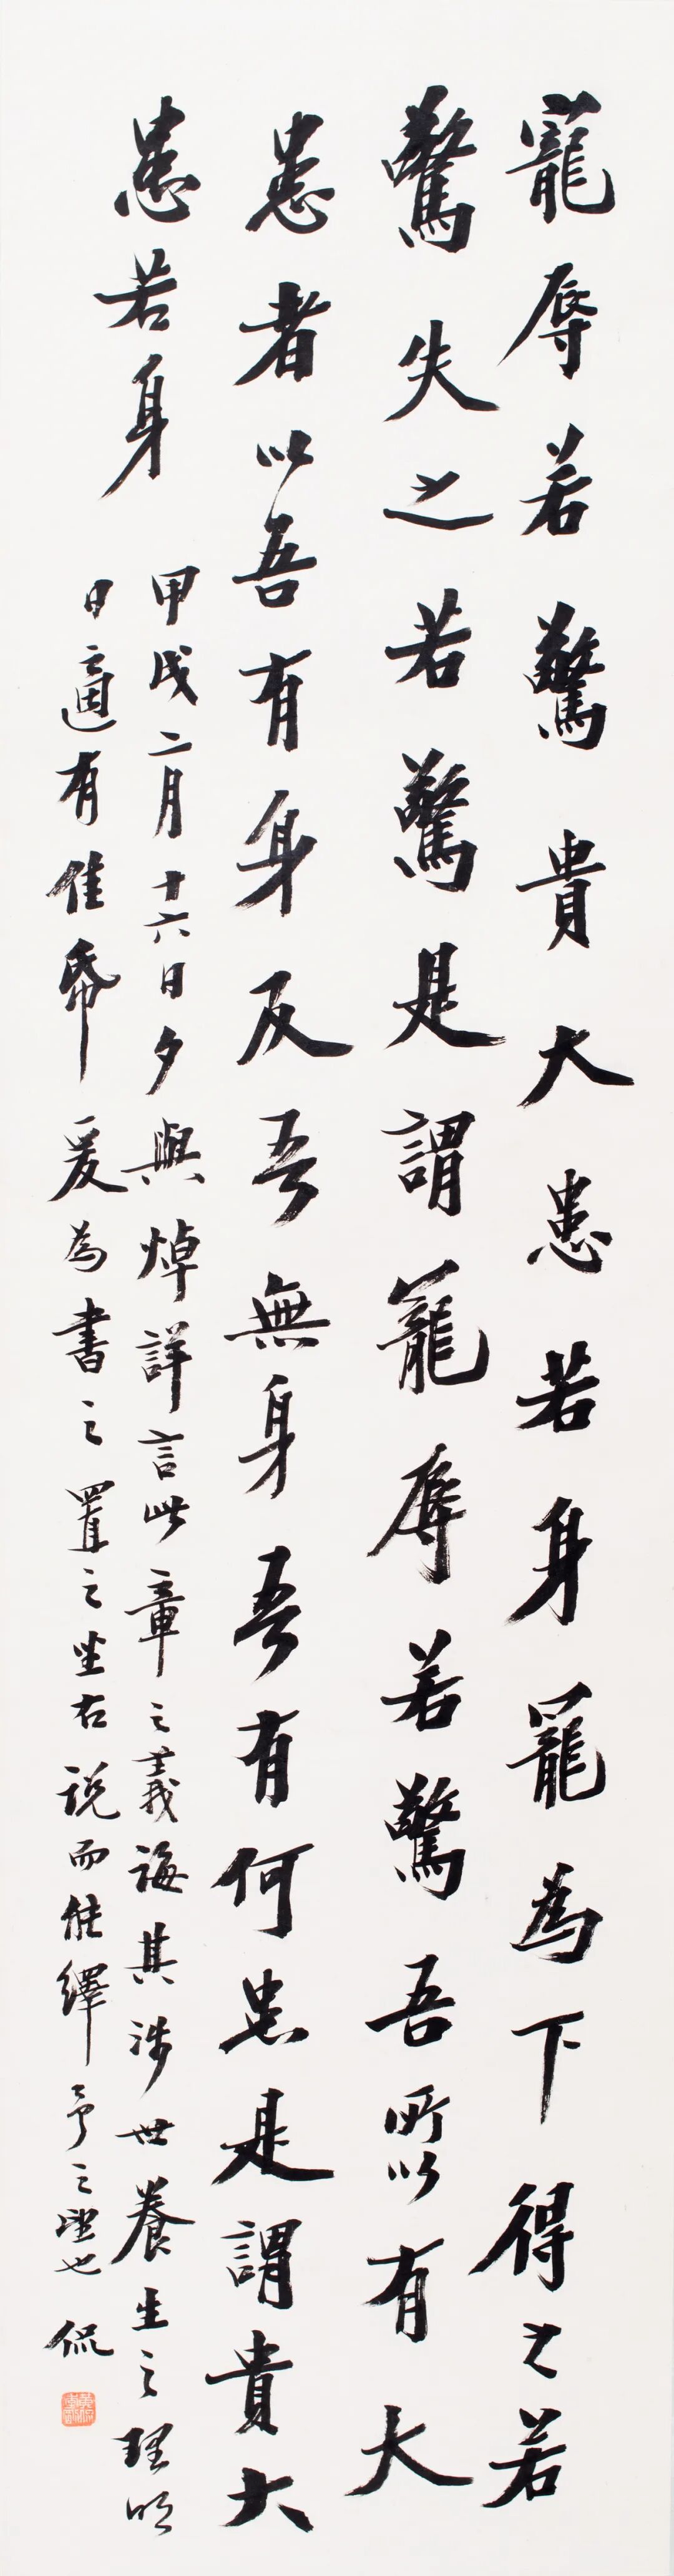 寵辱若驚貴大患若身寵為下得之若
驚失之若驚是謂寵辱若驚吾所以有大
患者以吾有身及吾無身吾有何患是謂貴大
患若身
甲戌二月十六日夕與焯詳言此章之義誨其涉世養生之理明
日適有佳帋爰為書之置之坐右説而能繹予之望也侃